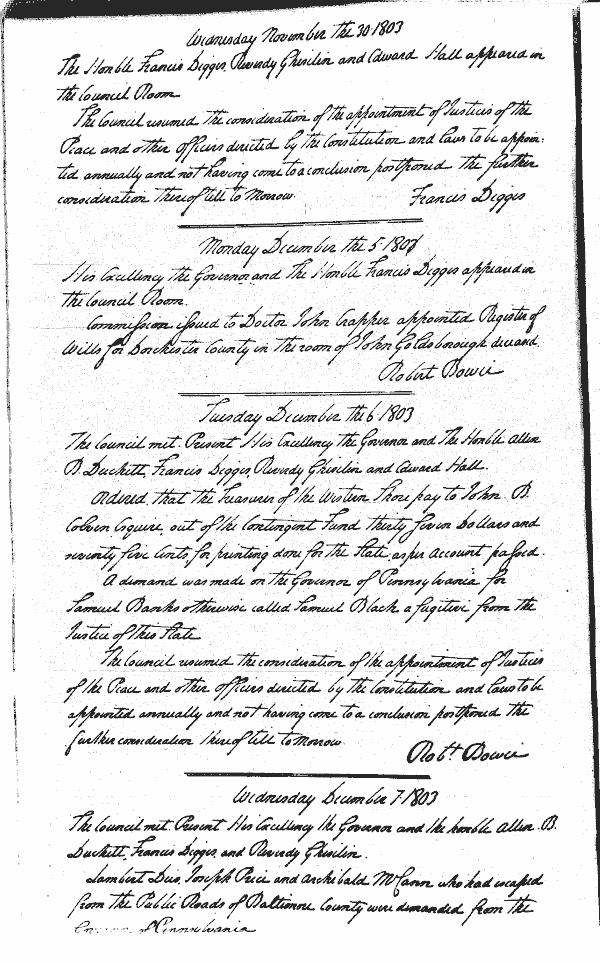 Wednesday November the 30 1803
The Honble Francis Digges, Reverdy Ghiselin and Edward Hall appeared in
the Council Room
The Council resumed the consideration of the appointment of Justices of the
Peace and other officers directed by the Constitution and Laws to be appoin-
ted annually and not having come to a conclusion postponed the further
consideration thereof till to Morrow.
Francis Digges
Monday December the 5 1803
His Excellency the Governor and The Honble Francis Digges appeared in
the Council Room.
Commission issued to Doctor John Crapper appointed Register of
Wills for Dorchester County in the room of John Goldsborough deceased
Robert Bowie
Tuesday December the 6 1803
The Council met. Present His Excellency the Governor and The Honble Allen
B. Duckett, Francis Digges, Reverdy Ghiselin and Edward Hall.
Ordered, that the Treasurer of the Western Shore pay to John B.
Colvin Esquire, out of the Contingent Fund thirty seven Dollars and
seventy five Cents, for printing done for the State, as per account passed.
A demand was made on the Governor of Pennsylvania for
Samuel Banks otherwise called Samuel Black a fugitive from the
Justice of this State
The Council resumed the consideration of the appointment of Justices
of the Peace and other officers directed by the Constitution and Laws to be
appointed annually and not having come to a conclusion postponed the
further consideration thereof till to Morrow
Robt. Bowie
Wednesday December 7 1803
The Council met. Present His Excellency the Governor and the honble Allen B.
Duckett, Francis Digges, and Reverdy Ghiselin.
Lambert Joseph Price and Archibald McCann who had escaped
from the Public Roads of Baltimore County were demanded from the
Governor of Pennsylvania